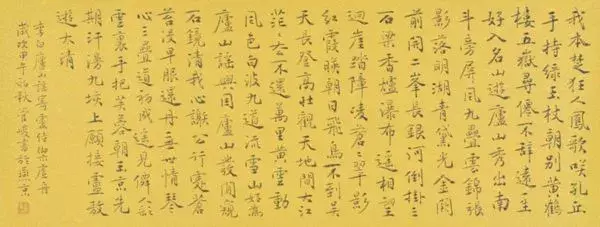 我本楚狂人鳳歌咲孔丘
手持綠玉杖朝別黃鶴
樓五嶽尋僊不辭遠一生
好入名山遊廬山秀出南
斗傍屏風九疊雲錦張
影落明湖青黛光金闕
前開二峯長銀河倒掛三
石梁香爐瀑布遥相望
迴崖踏障凌蒼〻翠影
紅霞映朝日飛鳥不到吴
天長登高壯觀天地間大江
茫〻去不還萬里黃雲動
風色白波九道流雪山好為
廬山謡興因廬山發閑窺
石鏡清我心謝公行處蒼
苔没早服還丹無世情琴
心三疊道初成遥見僊人彩
雲裏手把芙蓉朝玉京先
期汗漫九垓上願接盧敖
遊太清
李白廬山謡寄盧侍御虛舟
歲次甲午初秋管峻書於燕京